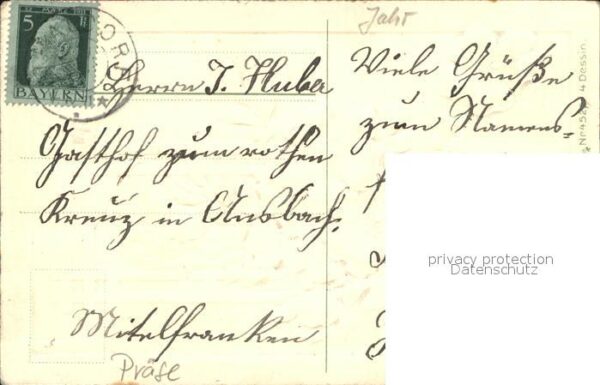 5
BAYERN
Jahr
Herrn J. Huba
Gasthof zum rothen
Kreuz in Ansbach.
Mitelfranken
Präge
Viele Grüße
zum Namens-
4 Dessin.
privacy protection
Datenschutz